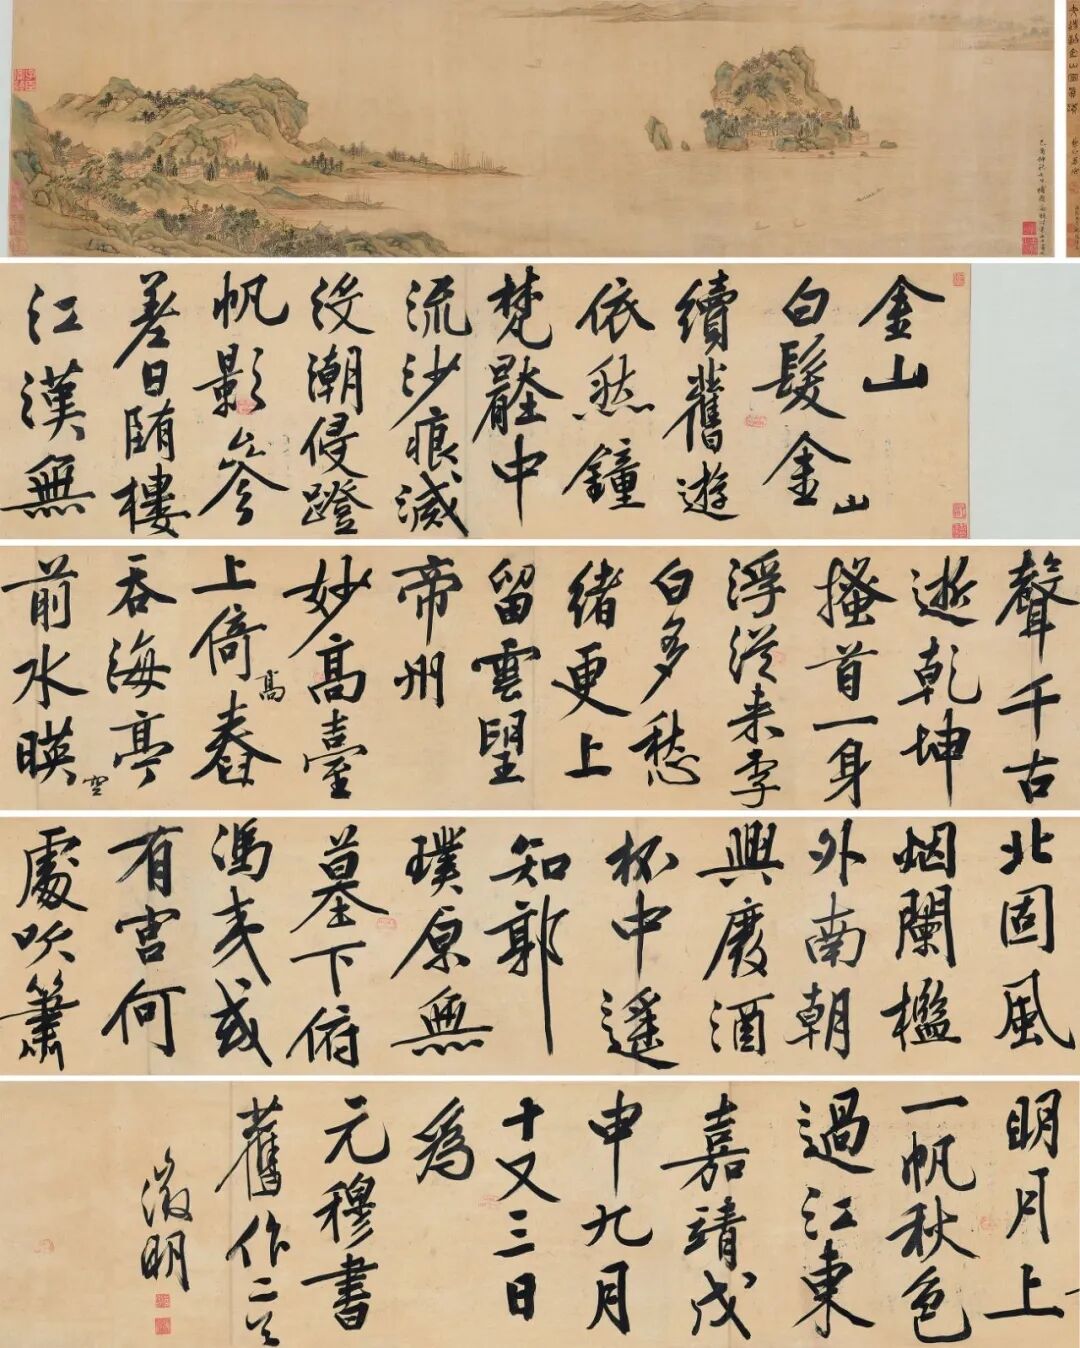 金山
白髮金山
續舊遊
依然鐘
梵罄中
流沙痕減
没潮侵蹬
帆影參
差日晒樓
江漢無
聲千古
逝乾坤
搔首一身
浮從来李
白多愁
緒更上
留雲望
帝州
妙高臺
上倚春
高
吞海亭
前水暎
空
北固風
烟闌檻
外南朝
興廢酒
杯中遥
知郭
璞原無
墓下俯
馮夷或
有宫何
處吹簫
明月上
一帆秋色
過江東
嘉靖戊
申九月
十又三日
為
元穆書
舊作二首
徵明